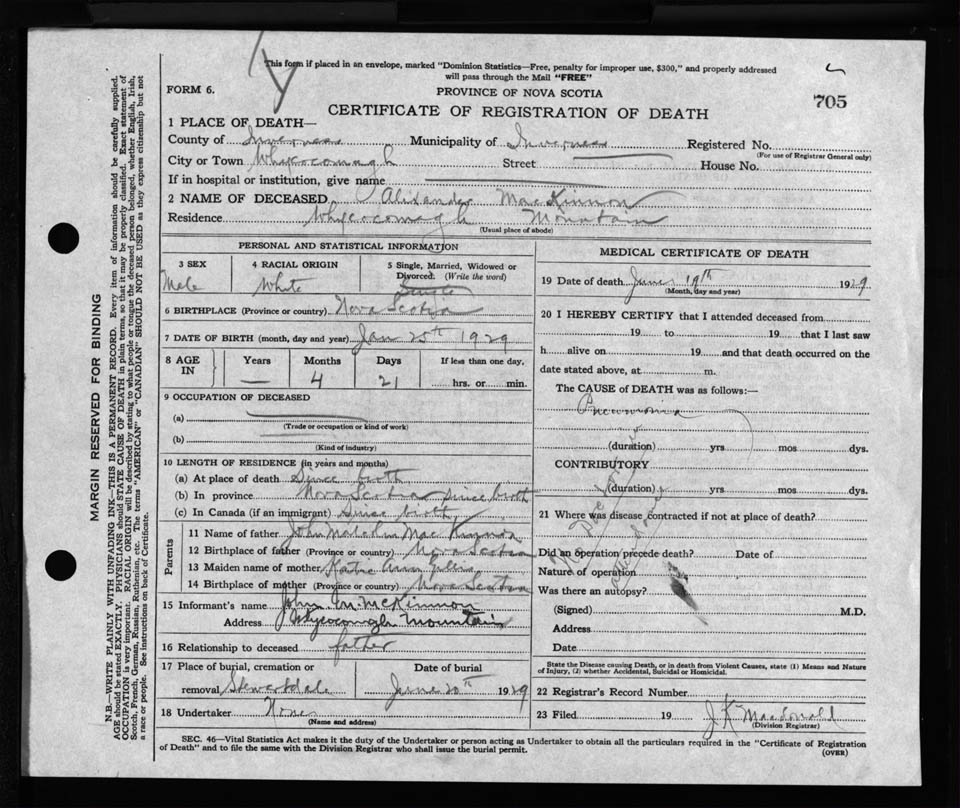 This form if placed in an envelope, marked "Dominion Statistics—Free, penalty for improper use, $300," and properly addressed
will pass through the Mail "FREE"
FORM 6.
PROVINCE OF NOVA SCOTIA
705
CERTIFICATE OF REGISTRATION OF DEATH
1 PLACE OF DEATH—
County of Inverness Municipality of Inverness Registered No.
(For use of Registrar General only)
City or Town Whycocomagh Street House No.
If in hospital or institution, give name
2 NAME OF DECEASED Alixander MacKinnon
Residence Whycocomagh Mountain
(Usual place of abode)
PERSONAL AND STATISTICAL INFORMATION
3 SEX 4 RACIAL ORIGIN 5 Single, Married, Widowed or
Divorced. (Write the word)
Male White Single
6 BIRTHPLACE (Province or country) Nova Scotia
7 DATE OF BIRTH (month, day and year) Jan 25th 1929
8 AGE IN Years Months Days If less than one day,
— 4 21 hrs. or min.
9 OCCUPATION OF DECEASED
(a)
(Trade or occupation or kind of work)
(b)
(Kind of industry)
10 LENGTH OF RESIDENCE (in years and months)
(a) At place of death Since birth
(b) In province Nova Scotia since birth
(c) In Canada (if an immigrant) since birth
Parents
11 Name of father John Malcolm MacKinnon
12 Birthplace of father (Province or country) Nova Scotia
13 Maiden name of mother Katie Ann Gillis
14 Birthplace of mother (Province or country) Nova Scotia
15 Informant's name John M. McKinnon
Address Whycocomagh Mountain
16 Relationship to deceased father
17 Place of burial, cremation or Date of burial
removal Stewartdale June 20th 1929
18 Undertaker None
(Name and address)
MEDICAL CERTIFICATE OF DEATH
19 Date of death June 19th 1929
(Month, day and year)
20 I HEREBY CERTIFY that I attended deceased from
19 to 19 that I last saw
h alive on 19 and that death occurred on the
date stated above, at m.
The CAUSE of DEATH was as follows:—
Pneumonia
(duration) yrs mos dys.
CONTRIBUTORY
(duration) yrs mos dys.
21 Where was disease contracted if not at place of death?
Did an operation precede death? Date of
Nature of operation
Was there an autopsy?
(Signed) M.D.
Address
Date
State the Disease causing Death, or in death from Violent Causes, state (1) Means and Nature
of Injury, (2) whether Accidental, Suicidal or Homicidal.
22 Registrar's Record Number
23 Filed 19 J. K. Macdonald
(Division Registrar)
SEC. 46—Vital Statistics Act makes it the duty of the Undertaker or person acting as Undertaker to obtain all the particulars required in the "Certificate of Registration
of Death" and to file the same with the Division Registrar who shall issue the burial permit.
(OVER)
MARGIN RESERVED FOR BINDING
N.B.—WRITE PLAINLY WITH UNFADING INK—THIS IS A PERMANENT RECORD. Every item of information should be carefully supplied.
AGE should be stated EXACTLY. PHYSICIANS should STATE CAUSE OF DEATH in plain terms, so that it may be properly classified. Exact statement of
OCCUPATION is very important. RACIAL ORIGIN will be described by stating to what people or tongue the deceased person belonged, whether English, Irish,
Scotch, French, German, Russian, Ruthenian, etc. The terms "AMERICAN" or "CANADIAN" SHOULD NOT BE USED as they express citizenship but not
a race or people. See instructions on back of Certificate.